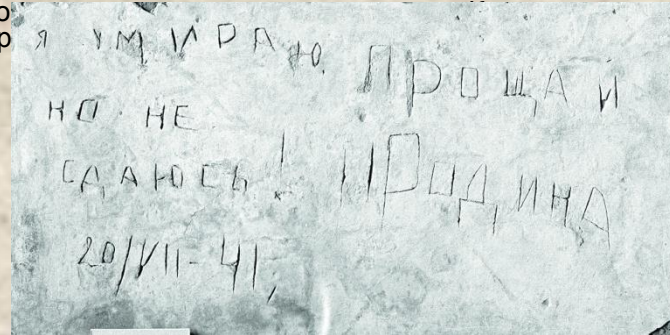 я УМИРАЮ,
НО НЕ
СДАЮСЬ!
20/VII-41,
ПРОЩАЙ
РОДИНА